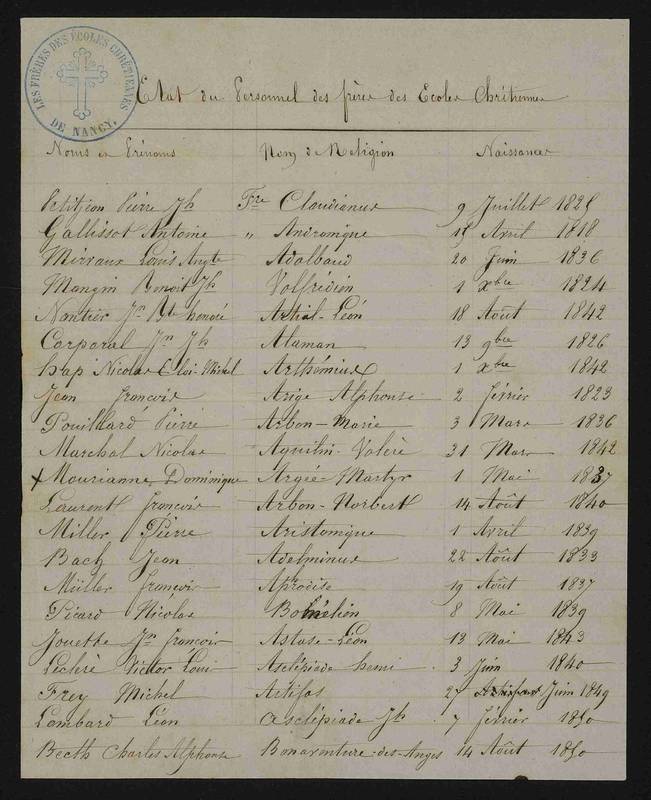 LES FRÈRES DES ÉCOLES CHRÉTIENNES
DE NANCY.
Etat du Personnel des frères des Ecoles Chrétiennes
Noms et Prénoms Noms de Religion Naissances
Petitjean Pierre Jh Fre Claudianus 9 Juillet
Gallissot Antoine " Andronique Avril 1818
Mirvaux Louis Augte Adalbaud 20 Juin 1836
Mangin Benoit Jh Volfrédien 1 xbre 1824
Nantier Jn Bte honoré Artial-Léon 18 Août 1842
Corporal Jn Jh Alaman 13 9bre 1826
hap Nicolas Eloi-Michel Arthémius 1 xbre 1842
Jean françois Arige Alphonse 2 février 1823
Pouillard Pierre Arbon-Marie 3 Mars 1836
Marchal Nicolas Aquilin-Valère 31 Mars 1842
x Mourianne, Dominique Argée Martyr 1 Mai 1837
Laurent françois Arbon-Norbert 14 Août 1840
Miller Pierre Aristonique 1 Avril 1839
Bach Jean Adelminus 22 Août 1833
Müller françois Aphrodise 19 Août 1837
Picard Nicolas 8 Mai 1839
Jouette Jn françois Astase-Léon 13 Mai 1843
Leclère Victor Louis Asclépiade henri 3 Juin 1840
Frey Michel Artifas 27 Juin 1849
Lombard Léon Asclépiade Jh 7 février 1850
Becth Charles Alphonse Bonaventure-des-Anges 14 Août 1850